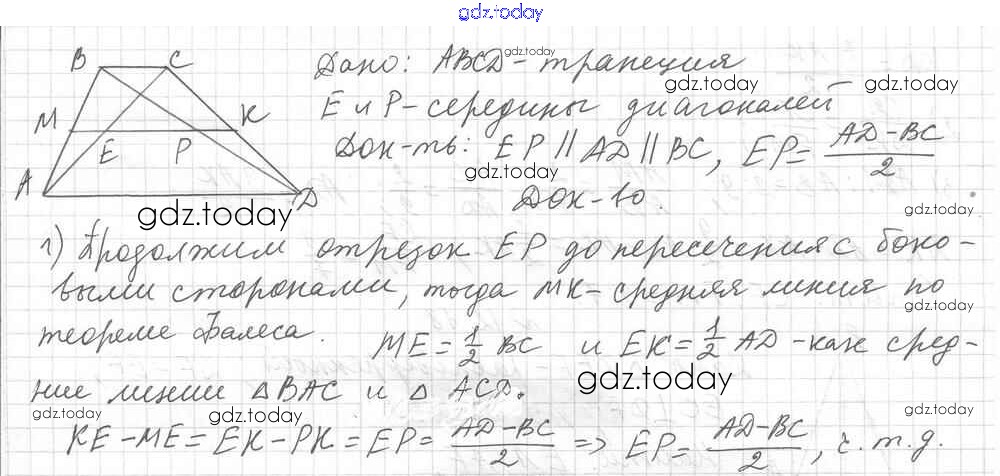 gdz.today
B C
M K
E P
A D
Дано: ABCD - трапеция
E и P - середины диагоналей
Док-ть: EP || AD || BC, EP = AD-BC/2
Док-во.
1) Продолжим отрезок EP до пересечения с боко-
выми сторонами, тогда MK - средняя линия по
теореме Фалеса. ME = 1/2 BC и EK = 1/2 AD - как сред-
ние линии △ BAC и △ ACD.
KE - ME = EK - PK = EP = AD-BC/2 => EP = AD-BC/2, ч.т.д.
gdz.today
gdz.today
gdz.today
gdz.today
gdz.today
gdz.today
gdz.today
gdz.today
gdz.today
gdz.today
gdz.today
gdz.today